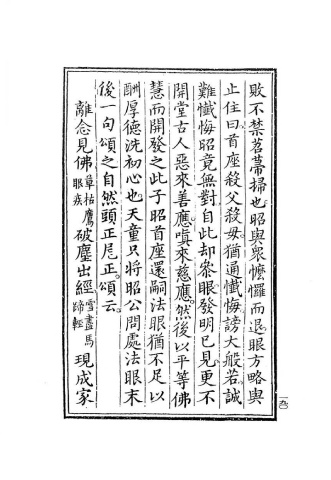 敗不禁苕菷掃也昭與衆懡㦬而退眼方略與
止住曰首座殺父殺母猶通懺悔謗大般若誠
難懺悔昭竟無對自此却參眼發明已見更不
開堂古人惡來善應嗔來慈應然後以平等佛
慧而開發之此子昭首座還嗣法眼猶不足以
酬厚德洗初心也天童只將昭公問處法眼末
後一句頌之自然頭正尾正頌云
離念見佛草枯鷹眼疾破塵出經雪盡馬蹄輕現成家